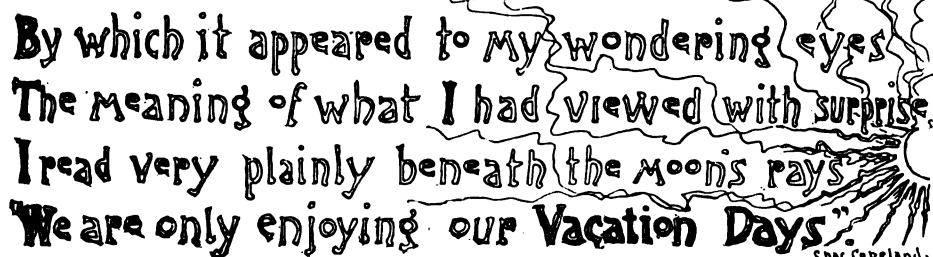 By which it appeared to my wondering eyes
The meaning of what I had viewed with surprise,
I read very plainly beneath the moon's rays
"We are only enjoying our Vacation Days".